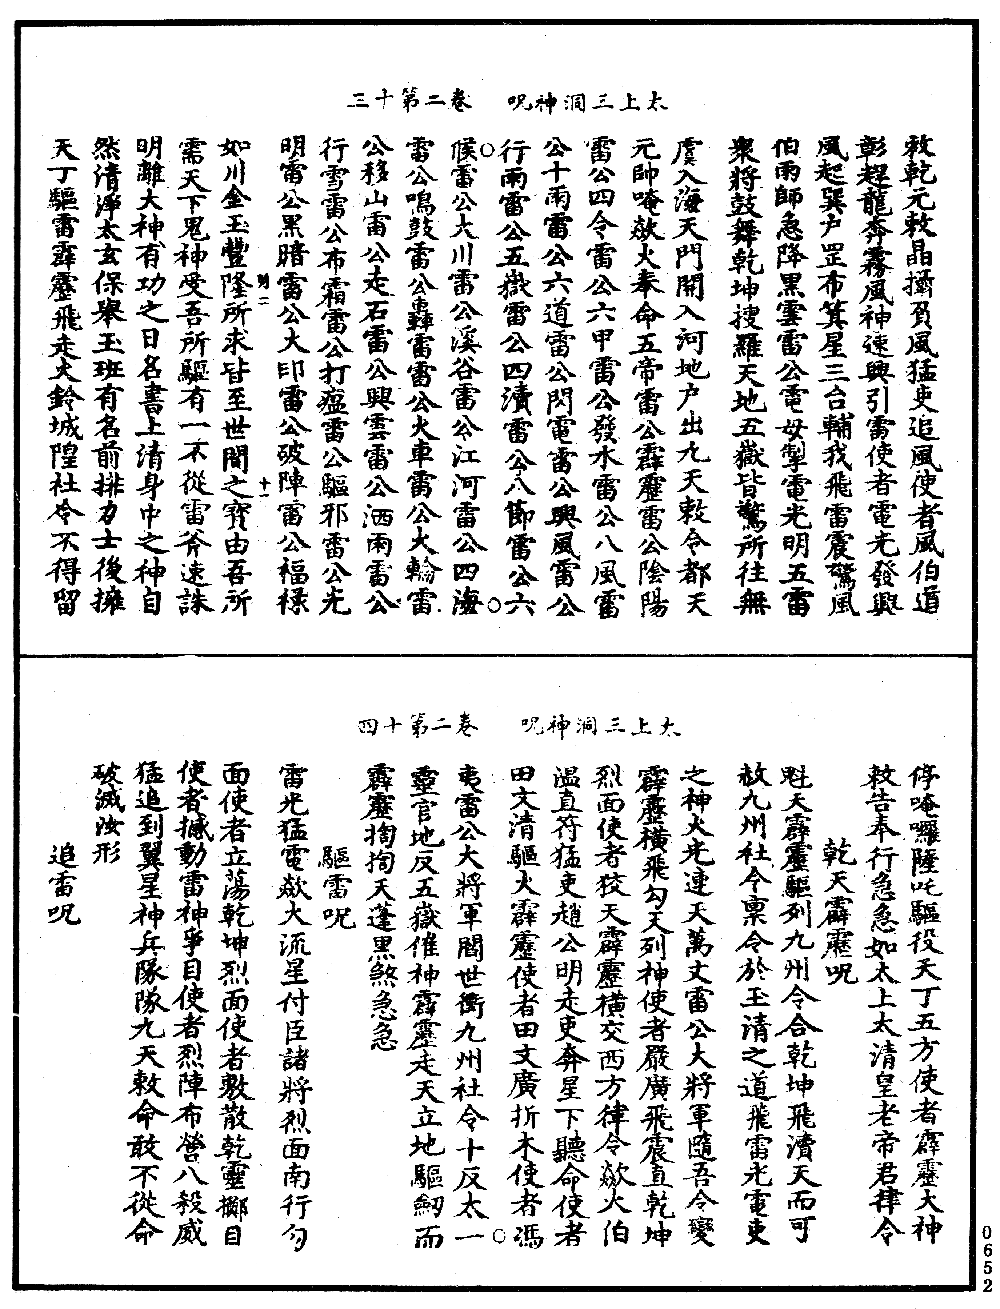 太上三洞神呪　卷二第十三
敕乾元敕晶攝負風猛吏追風使者風伯道
彰趕龍奔霧風神速興引需使者電光發興
風起巽户罡布箕星三台輔我飛雷震驚風
伯雨師急降黑雲雷公電母掣電光明五雷
衆將鼓舞乾坤搜羅天地五嶽皆驚所往無
虞入海天門開入河地户出九天敕令都天
元帥唵欻火奉命五帝雷公霹靂雷公陰陽
雷公四令雷公六甲雷公發水雷公八風雷
公十雨雷公六道雷公閃電雷公興風雷公
行雨雷公五嶽雷公四瀆雷公八節雷公六
候雷公大川雷公溪谷雷公江河雷公四海
雷公鳴鼓雷公轟雷雷公火車雷公火輪雷
公移山雷公走石雷公興雲雷公洒雨雷公
行雪雷公布霜雷公打瘟雷公驅邪雷公光
明雷公黑暗雷公大印雷公破陣雷公福祿
十一
如川金玉豐隆所求皆至世間之寶由吾所
需天下鬼神受吾所驅有一不從雷斧速誅
明離大神有功之日名書上清身中之神自
然清淨太玄保舉玉班有名前排力士後擁
天丁驅雷霹靂飛走火鈴城隍社令不得留
太上三洞神呪　卷二第十四
停唵囉薩吒驅役天丁五方使者霹靂大神
敕告奉行急急如太上太清皇老帝君律令
乾天霹靂呪
魁天霹靂驅列九州令合乾坤飛瀆天而可
赦九州社令稟令於玉清之道飛雷光電吏
之神火光連天萬丈雷公大將軍隨吾令變
霹靂橫飛勾天列神使者嚴廣飛震直乾坤
烈面使者狡天霹靂橫交西方律令欻火伯
溫直符猛吏趙公明走吏奔星下聽命使者
田文清驅火霹靂使者田文廣折木使者馮
夷雷公大將軍閻世衝九州社令十反太一
靈官地反五嶽催神霹靂走天立地驅㓨而
霹靂搊搊天蓬黑煞急急
驅雷呪
雷光猛電欻大流星付臣諸將烈面南行勾
面使者立蕩乾坤烈面使者敷散乾靈擲目
使者撼動雷神爭目使者烈陣布營八殺威
猛追到翼星神兵隊隊九天敕命敢不從命
破滅汝形
追雷呪
0652